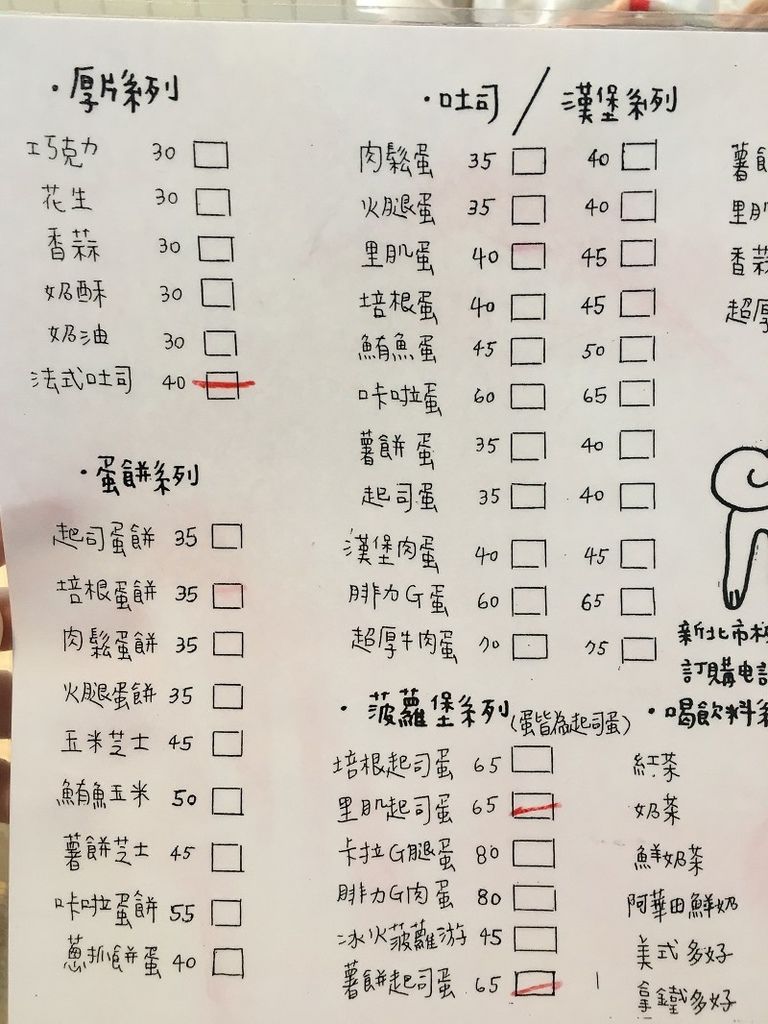 ·厚片系列
巧克力 30
花生 30
香蒜 30
奶酥 30
奶油 30
法式吐司 40
·蛋餅系列
起司蛋餅 35
培根蛋餅 35
肉鬆蛋餅 35
火腿蛋餅 35
玉米芝士 45
鮪魚玉米 50
薯餅芝士 45
咔啦蛋餅 55
蔥抓餅蛋 40
·吐司 / 漢堡系列
肉鬆蛋 35 40
火腿蛋 35 40
里肌蛋 40 45
培根蛋 40 45
鮪魚蛋 45 50
咔啦蛋 60 65
薯餅蛋 35 40
起司蛋 35 40
漢堡肉蛋 40 45
腓力G蛋 60 65
超厚牛肉蛋 70 75
·菠蘿堡系列(蛋皆為起司蛋)
培根起司蛋 65
里肌起司蛋 65
卡拉G腿蛋 80
腓力G肉蛋 80
冰火菠蘿游 45
薯餅起司蛋 65
薯餅
里肌
香蒜
超厚
新北市
訂購電話
·喝飲料系
紅茶
奶茶
鮮奶茶
阿華田鮮奶
美式多好
拿鐵多好